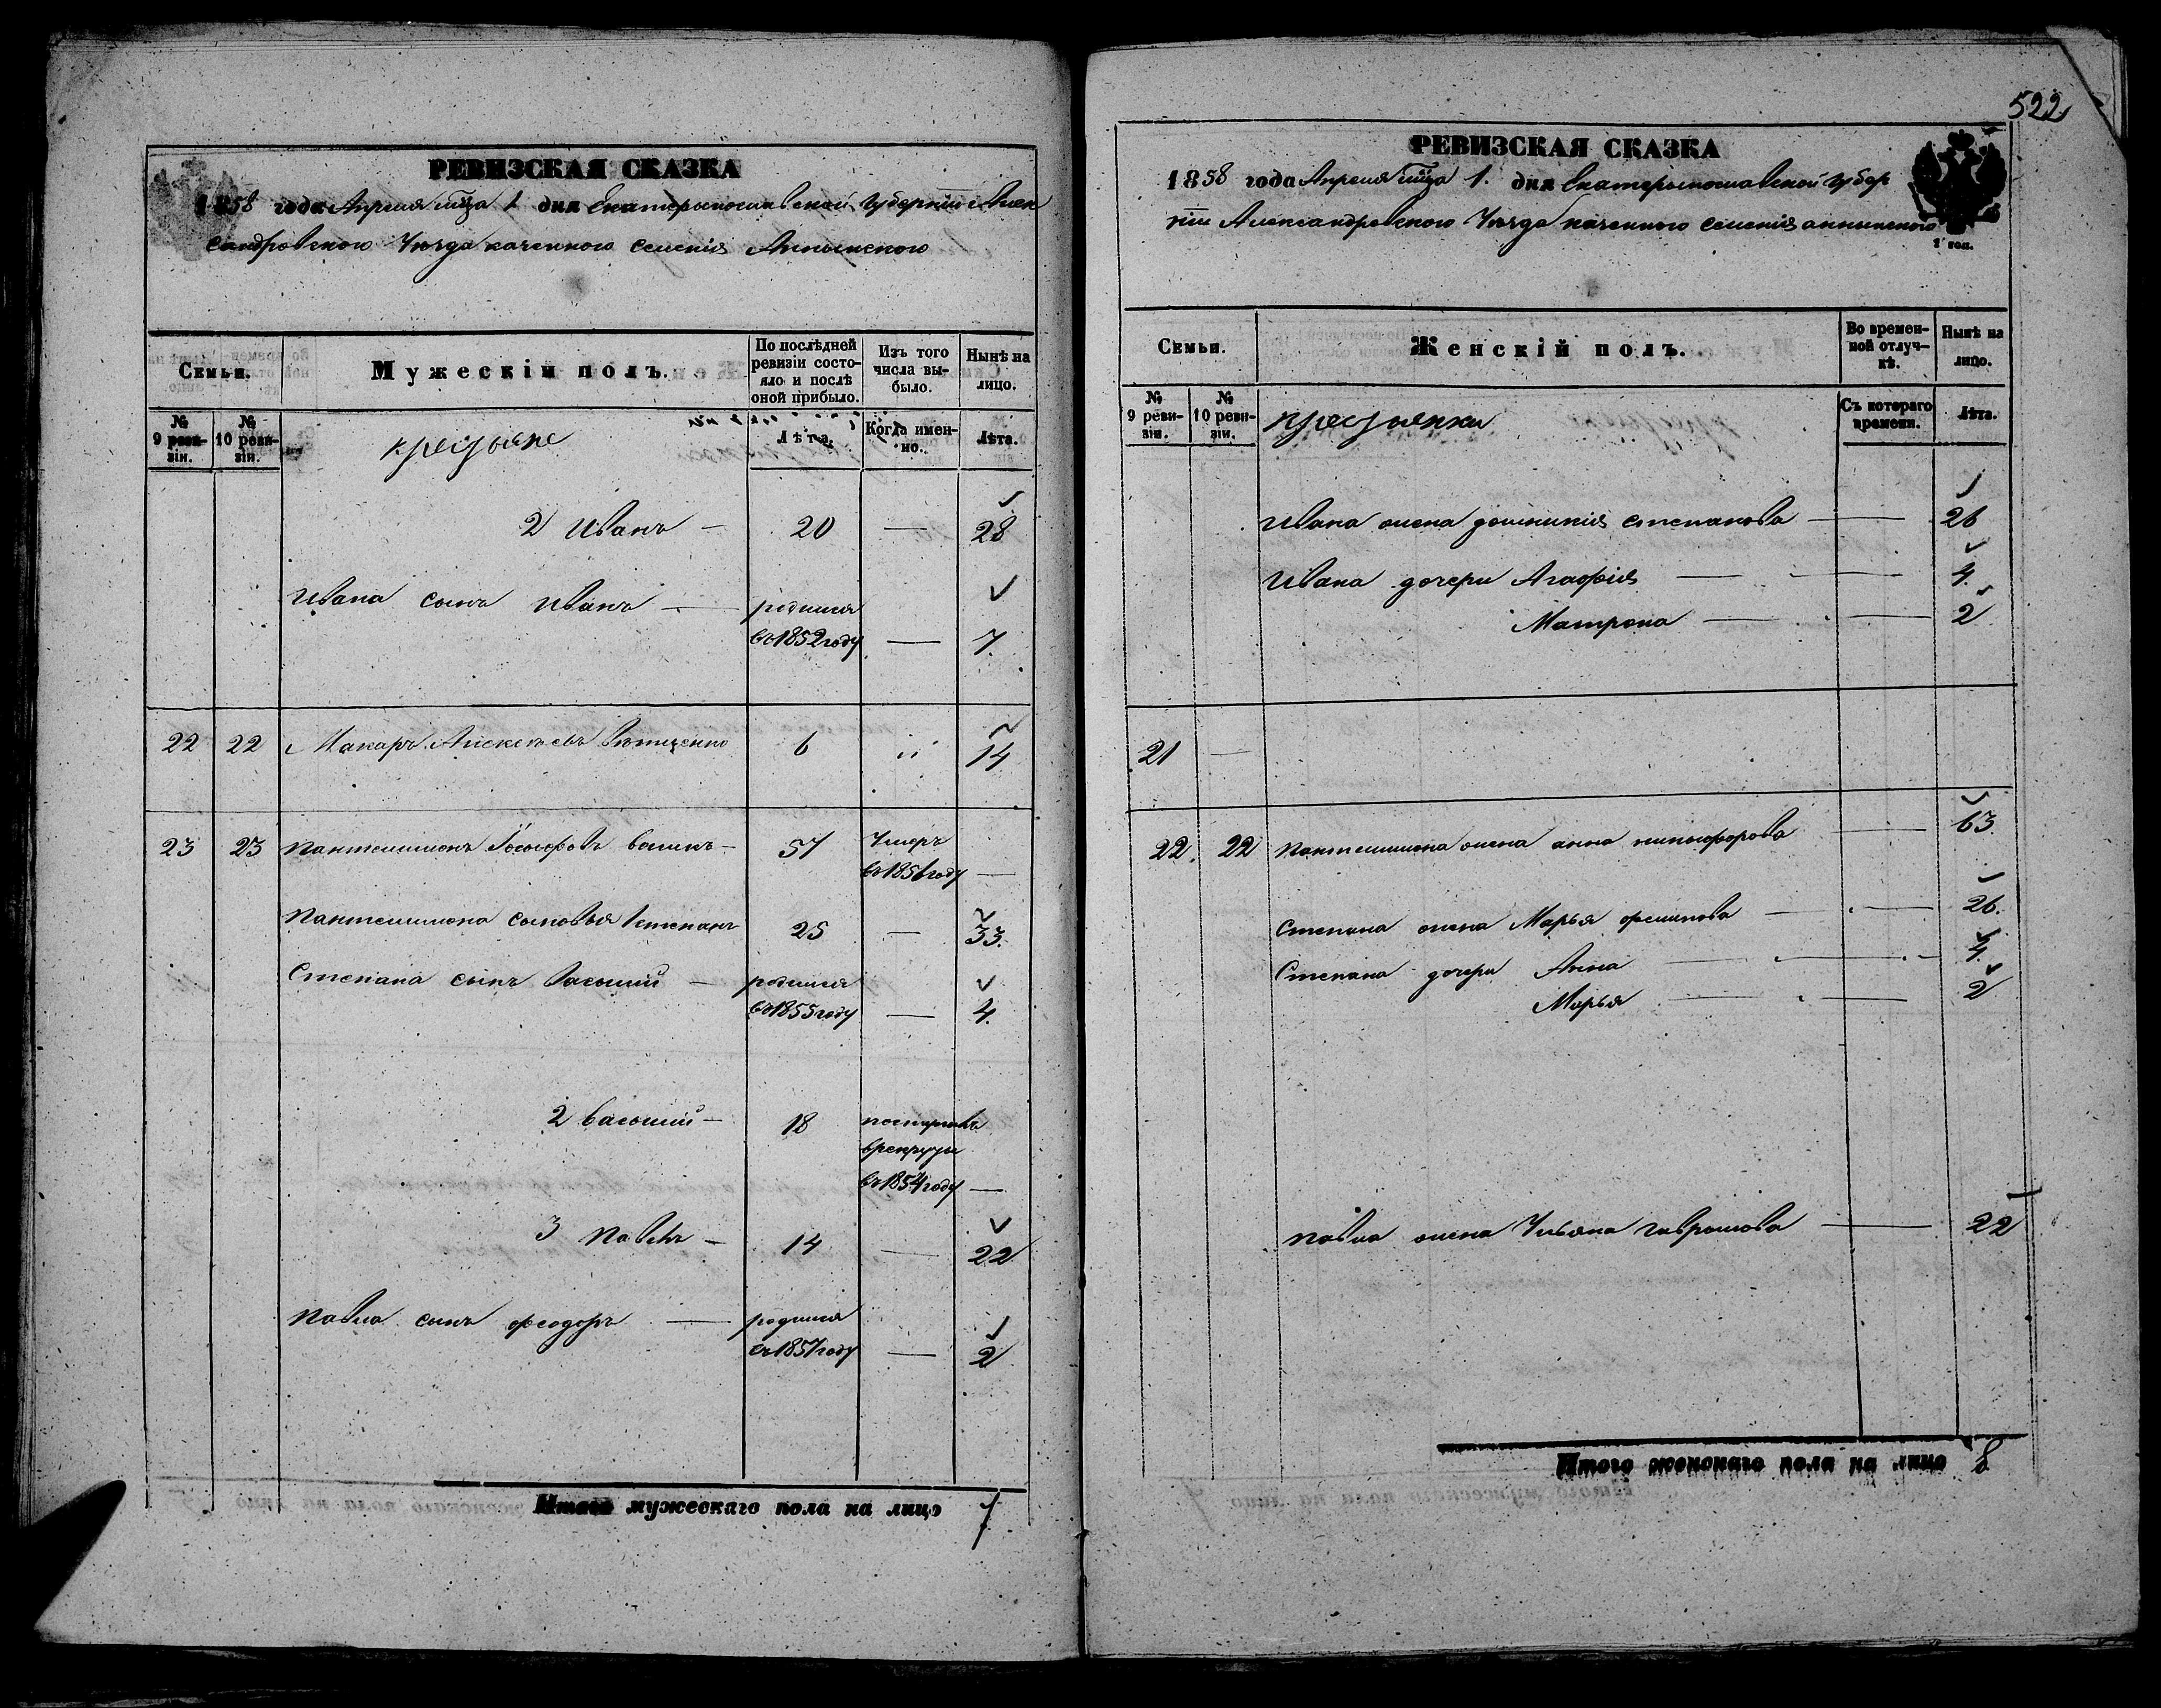 РЕВИЗСКАЯ СКАЗКА
1858 года Апреля мца 1 дня Екатеринославской губернии Алек
сандровского Уезда казенного селения Аннинского
Семьи.
Мужескій полъ.
По послѣдней ревизіи состояло и послѣ оной прибыло.
Изъ того числа выбыло.
Нынѣ на лицо.
№ 9 ревизіи.
№ 10 ревизіи.
крестьяне
Лѣта.
Когда именно.
Лѣта.
2 Иванъ — 20 — 28
Ивана сынъ Иванъ — родился
въ 1852 году — 7
22 22 Макаръ Алексѣевъ 6 " 14
23 23 Пантелимонъ Іосифовъ 57 Умеръ
въ 1856 году —
Пантелимона сыновья 1 Степанъ 25 — 33
Степана сынъ Василий — родился
въ 1855 году — 4
2 Василий — 18 поступилъ
в рекруты
въ 1854 году —
3 Павелъ — 14 — 22
Павла сынъ Феодоръ — родился
въ 1857 году — 2
Итого мужескаго пола на лицо 7
522
РЕВИЗСКАЯ СКАЗКА
1858 года Апреля мца 1. дня Екатеринославской губер
нии Александровского Уезда казенного селения Аннинского
Семьи.
Женскій полъ.
Во временной отлучкѣ.
Нынѣ на лицо.
№ 9 ревизіи.
№ 10 ревизіи.
крестьянки
Съ котораго времени.
Лѣта.
Ивана жена Домникия Степанова — 26
Ивана дочери Агафия — 4
Матрона — 2
21 —
22 22 Пантелимона жена Анна Никифорова — 63
Степана жена Марья — 26
Степана дочери Анна — 4
Марья — 2
Павла жена Ульяна Гаврилова — 22
Итого женскаго пола на лицо 8